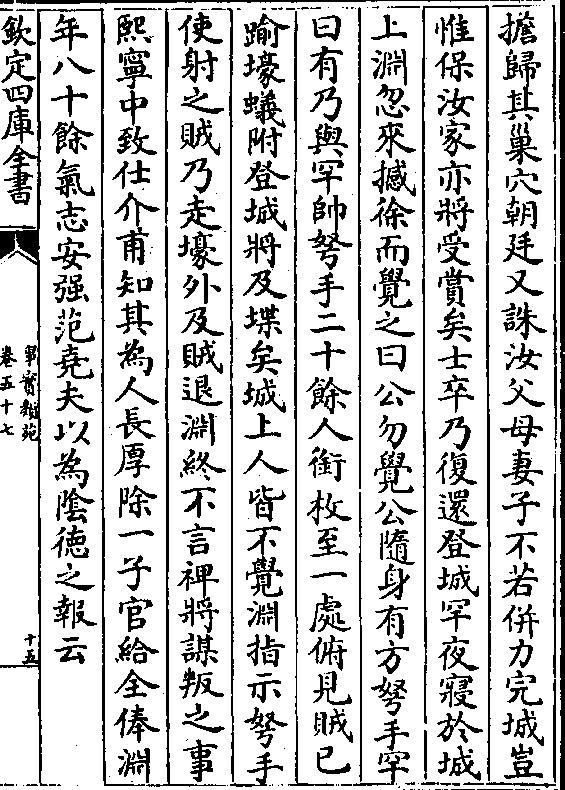 擔歸其巢穴朝廷又誅汝父母妻子不若併力完城豈
惟保汝家亦將受賞矣士卒乃復還登城罕夜寢於城
上淵忽來撼徐而覺之曰公勿覺公隨身有方弩手罕
曰有乃與罕帥弩手二十餘人銜枚至一處俯見賊已
踰壕蟻附登城將及堞矣城上人皆不覺淵指示弩手
使射之賊乃走壕外及賊退淵終不言裨將謀叛之事
熙寧中致仕介甫知其為人長厚除一子官給全俸淵
年八十餘氣志安强范堯夫以為陰德之報云
欽定四庫全書
事實類苑
卷五十七
十五